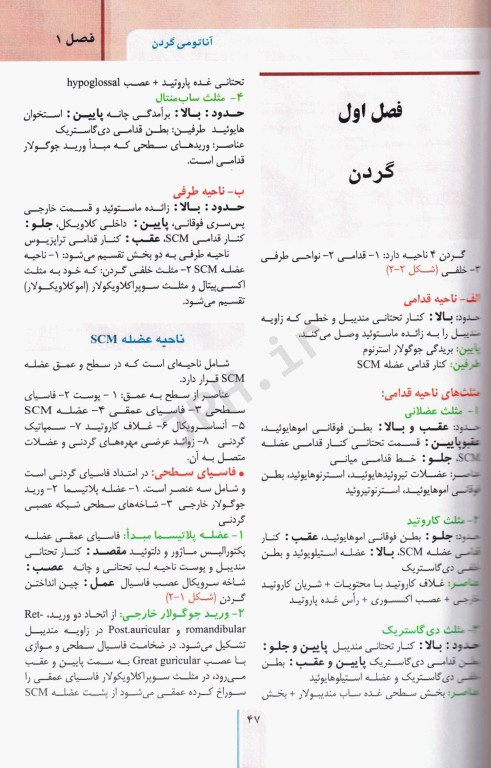 فصل ۱
آناتومی گردن
فصل اول
گردن
گردن ۴ ناحیه دارد: ۱- قدامی ۲- نواحی طرفی
۳- خلفی (شکل ۲-۲)
الف- ناحیه قدامی
حدود: بالا: کنار تحتانی مندیبل و خطی که زاویه
مندیبل را به زائده ماستوئید وصل می‌کند
پایین: بریدگی جوگولار استرنوم
طرفین: کنار قدامی عضله SCM
مثلث‌های ناحیه قدامی:
۱- مثلث عضلانی
حدود: عقب و بالا: بطن فوقانی اموهایوئید،
عقب‌وپایین: قسمت تحتانی کنار قدامی عضله
SCM، جلو: خط قدامی میانی
عناصر: عضلات تیروئیدهایوئید، استرنوهایوئید، بطن
فوقانی اموهایوئید، استرنوتیروئید
۲- مثلث کاروتید
حدود: جلو: بطن فوقانی اموهایوئید، عقب: کنار
قدامی عضله SCM، بالا: عضله استیلویوئید و بطن
خلفی دی‌گاستریک
عناصر: غلاف کاروتید با محتویات + شریان کاروتید
خارجی + عصب اکسسوری + رأس غده پاروتید
۳- مثلث دی‌گاستریک
حدود: بالا: کنار تحتانی مندیبل پایین و جلو:
بطن قدامی دی‌گاستریک پایین و عقب: بطن
خلفی دی‌گاستریک و عضله استیلوهایوئید
عناصر: بخش سطحی غده ساب مندیبولار + بخش
تحتانی غده پاروتید + عصب hypoglossal
۴- مثلث ساب‌منتال
حدود: بالا: برآمدگی چانه پایین: استخوان
هایوئید طرفین: بطن قدامی دی‌گاستریک
عناصر: وریدهای سطحی که مبدأ ورید جوگولار
قدامی است.
ب- ناحیه طرفی
حدود: بالا: زائده ماستوئید و قسمت خارجی
پس‌سری فوقانی، پایین: داخلی کلاویکل، جلو:
کنار قدامی SCM، عقب: کنار قدامی تراپزیوس
ناحیه طرفی به دو بخش تقسیم می‌شود: ۱- ناحیه
عضله SCM ۲- مثلث خلفی گردن: که خود به مثلث
اکسی‌پیتال و مثلث سوپراکلاویکولار (اموکلاویکولار)
تقسیم می‌شود.
ناحیه عضله SCM
شامل ناحیه‌ای است که در سطح و عمق عضله
SCM قرار دارد.
عناصر از سطح به عمق: ۱- پوست ۲- فاسیای
سطحی ۳- فاسیای عمقی ۴- عضله SCM
۵- آنساسرویکال ۶- غلاف کاروتید ۷- سمپاتیک
گردنی ۸- زوائد عرضی مهره‌های گردنی و عضلات
متصل به آن.
• فاسیای سطحی: در امتداد فاسیای گردنی است
و شامل سه عنصر است. ۱- عضله پلاتیسما ۲- ورید
جوگولار خارجی ۳- شاخه‌های سطحی شبکه عصبی
گردنی
۱- عضله پلاتیسما مبدأ: فاسیای عمقی عضله
پکتورالیس ماژور و دلتوئید مقصد: کنار تحتانی
مندیبل و پوست ناحیه لب تحتانی و چانه عصب:
شاخه سرویکال عصب فاسیال عمل: چین انداختن
گردن (شکل ۱-۲)
۲- ورید جوگولار خارجی: از اتحاد دو ورید، Ret-
romandibular و Post.auricular در زاویه مندیبل
تشکیل می‌شود. در ضخامت فاسیال سطحی و موازی
با عصب Great guricular به سمت پایین و عقب
می‌رود، در مثلث سوپراکلاویکولار فاسیای عمقی را
سوراخ کرده عمقی می‌شود از پشت عضله SCM
۴۷